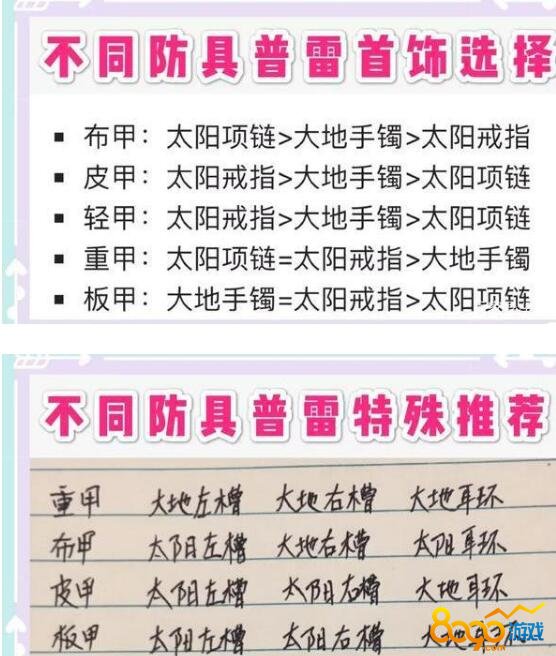 不同防具普雷首饰选择
▪ 布甲：太阳项链>大地手镯>太阳戒指
▪ 皮甲：太阳戒指>大地手镯>太阳项链
▪ 轻甲：太阳戒指>大地手镯>太阳项链
▪ 重甲：太阳项链=太阳戒指>大地手镯
▪ 板甲：大地手镯=太阳戒指>太阳项链
不同防具普雷特殊推荐
重甲 大地左槽 大地右槽 大地耳环
布甲 太阳左槽 大地右槽 太阳耳环
皮甲 太阳左槽 太阳右槽 大地耳环
板甲 太阳左槽 太阳右槽 大地
8090游戏